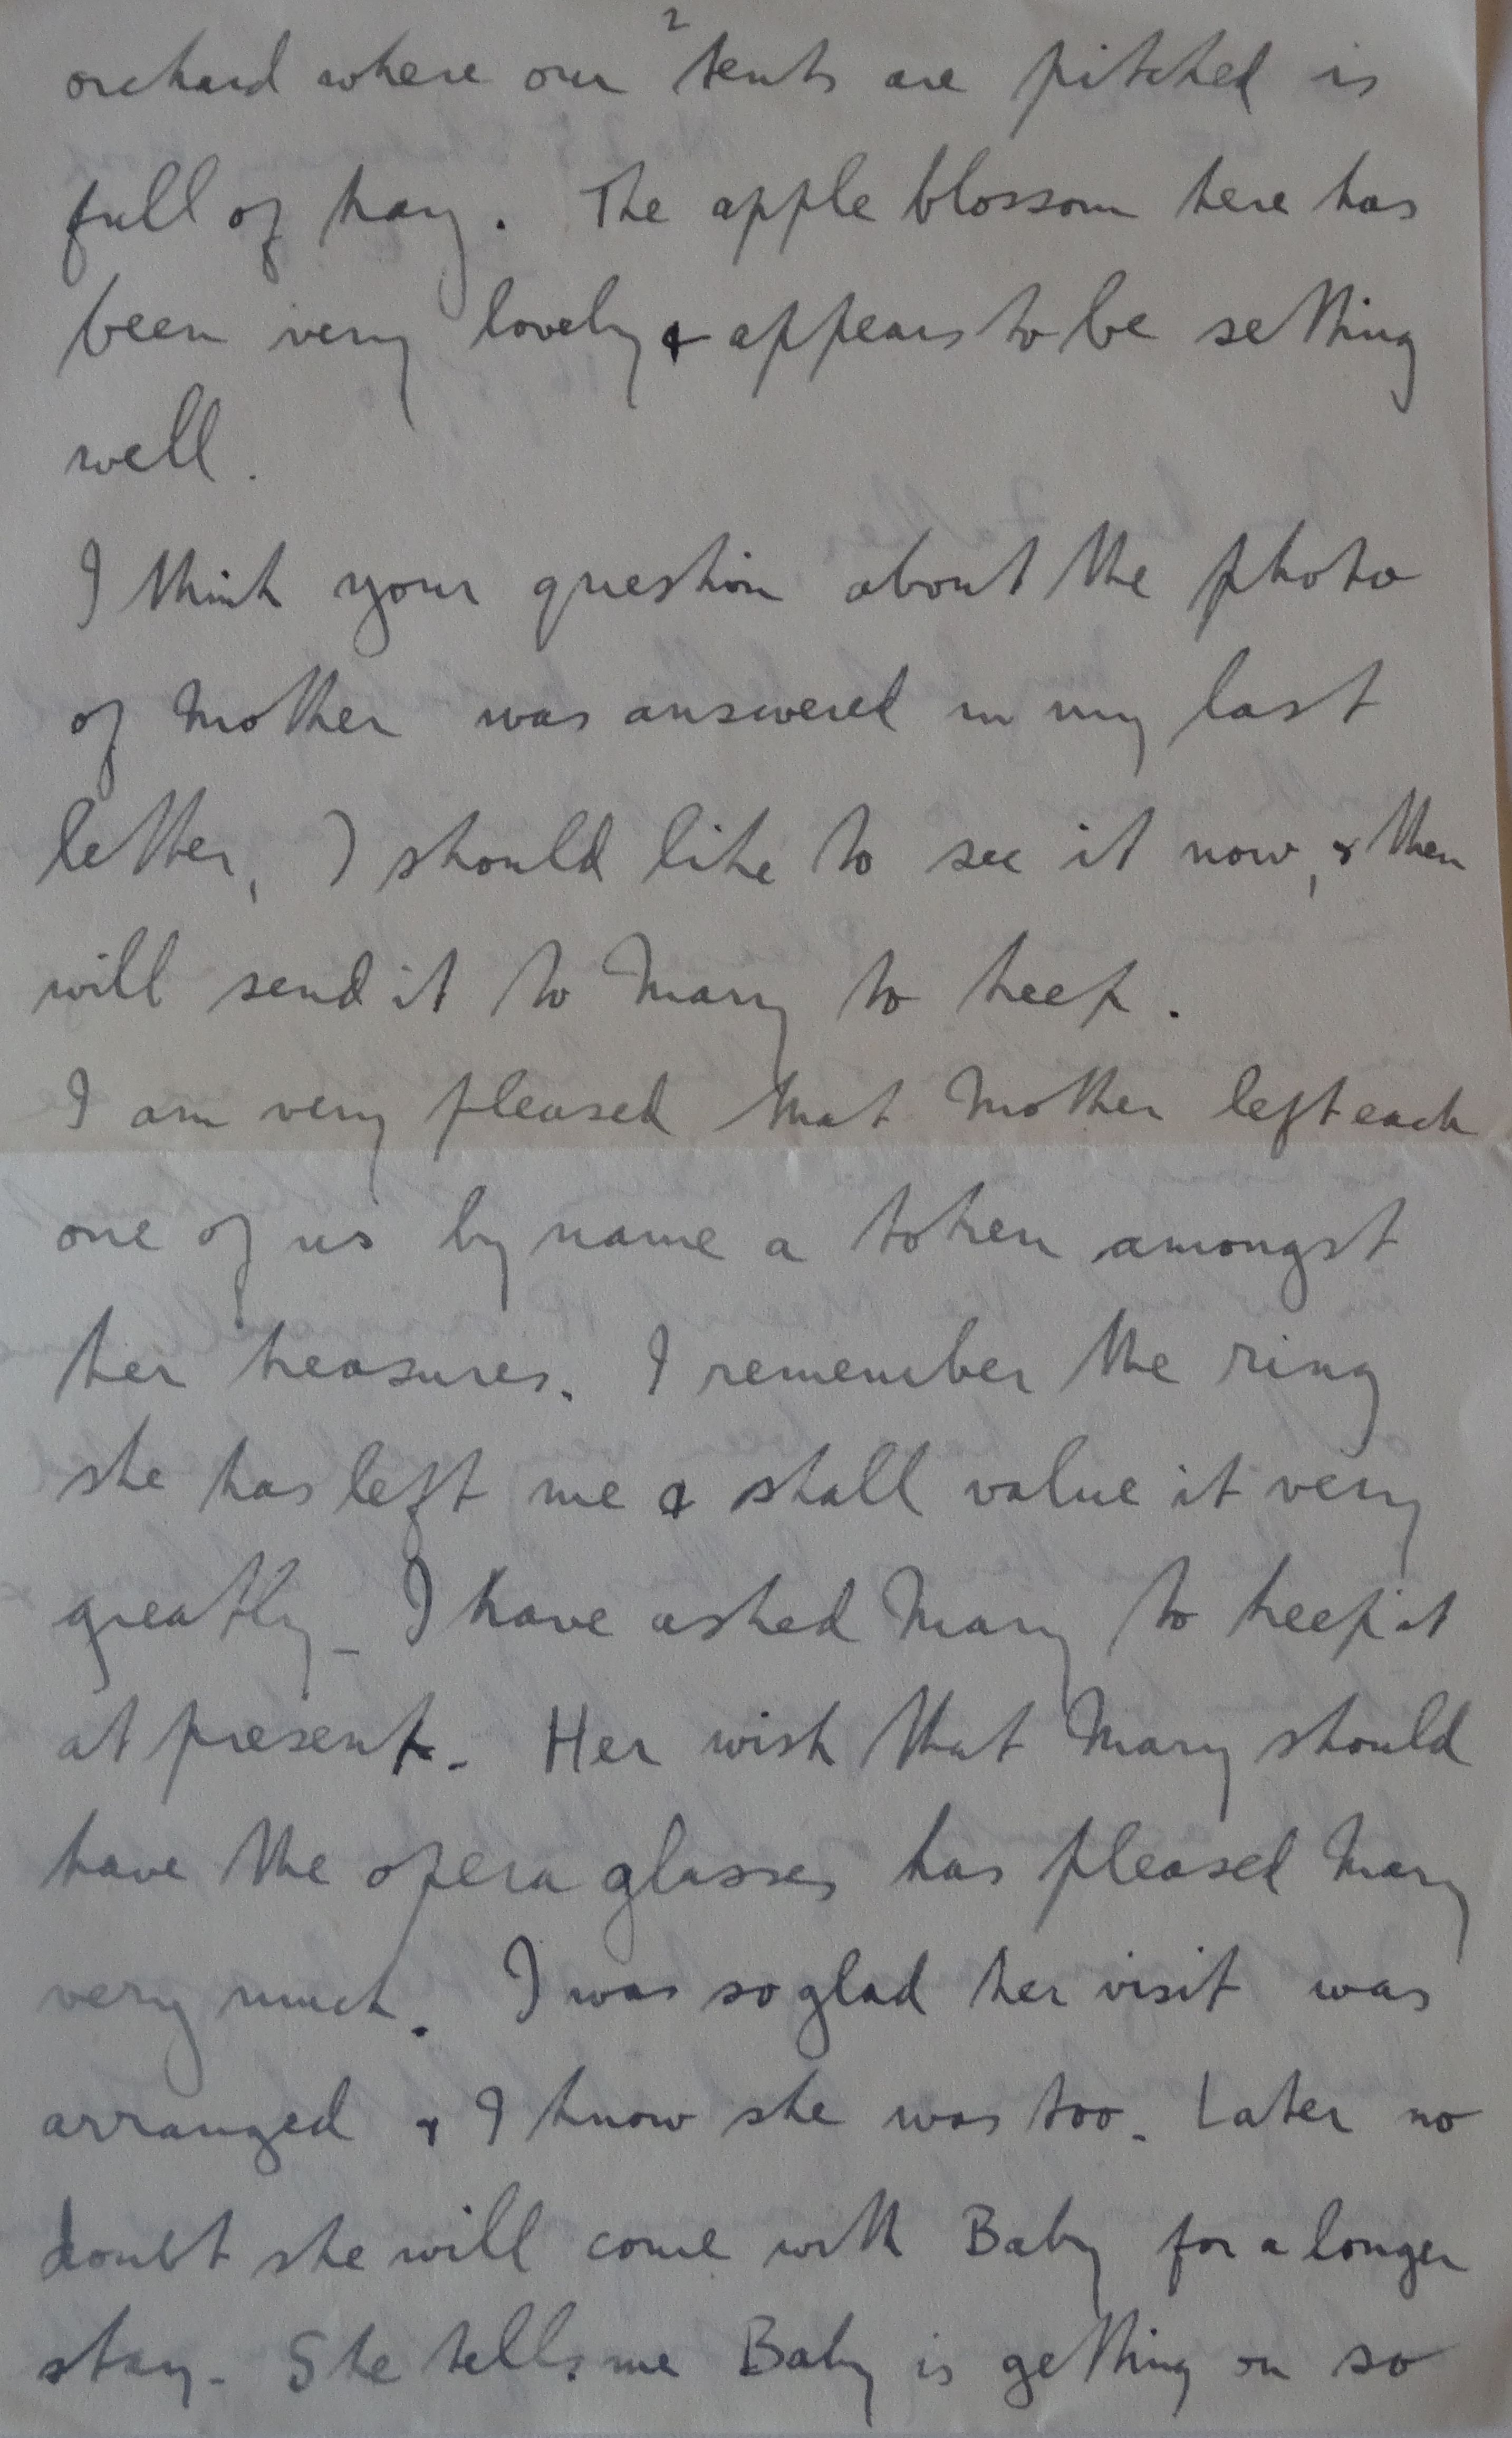 2
orchard where our tents are pitched is
full of hay. The apple blossom here has
been very lovely & appears to be setting
well.
I think your question about the photo
of Mother was answered in my last
letter, I should like to see it now, & then
will send it to Mary to keep.
I am very pleased that Mother left each
one of us by name a token amongst
her treasures. I remember the ring
she has left me & shall value it very
greatly - I have asked Mary to keep it
at present. Her wish that Mary should
have the opera glasses has pleased Mary
very much. I was so glad her visit was
arranged & I know she was too. Later no
doubt she will come with Baby for a longer
stay. She tells me Baby is getting on so